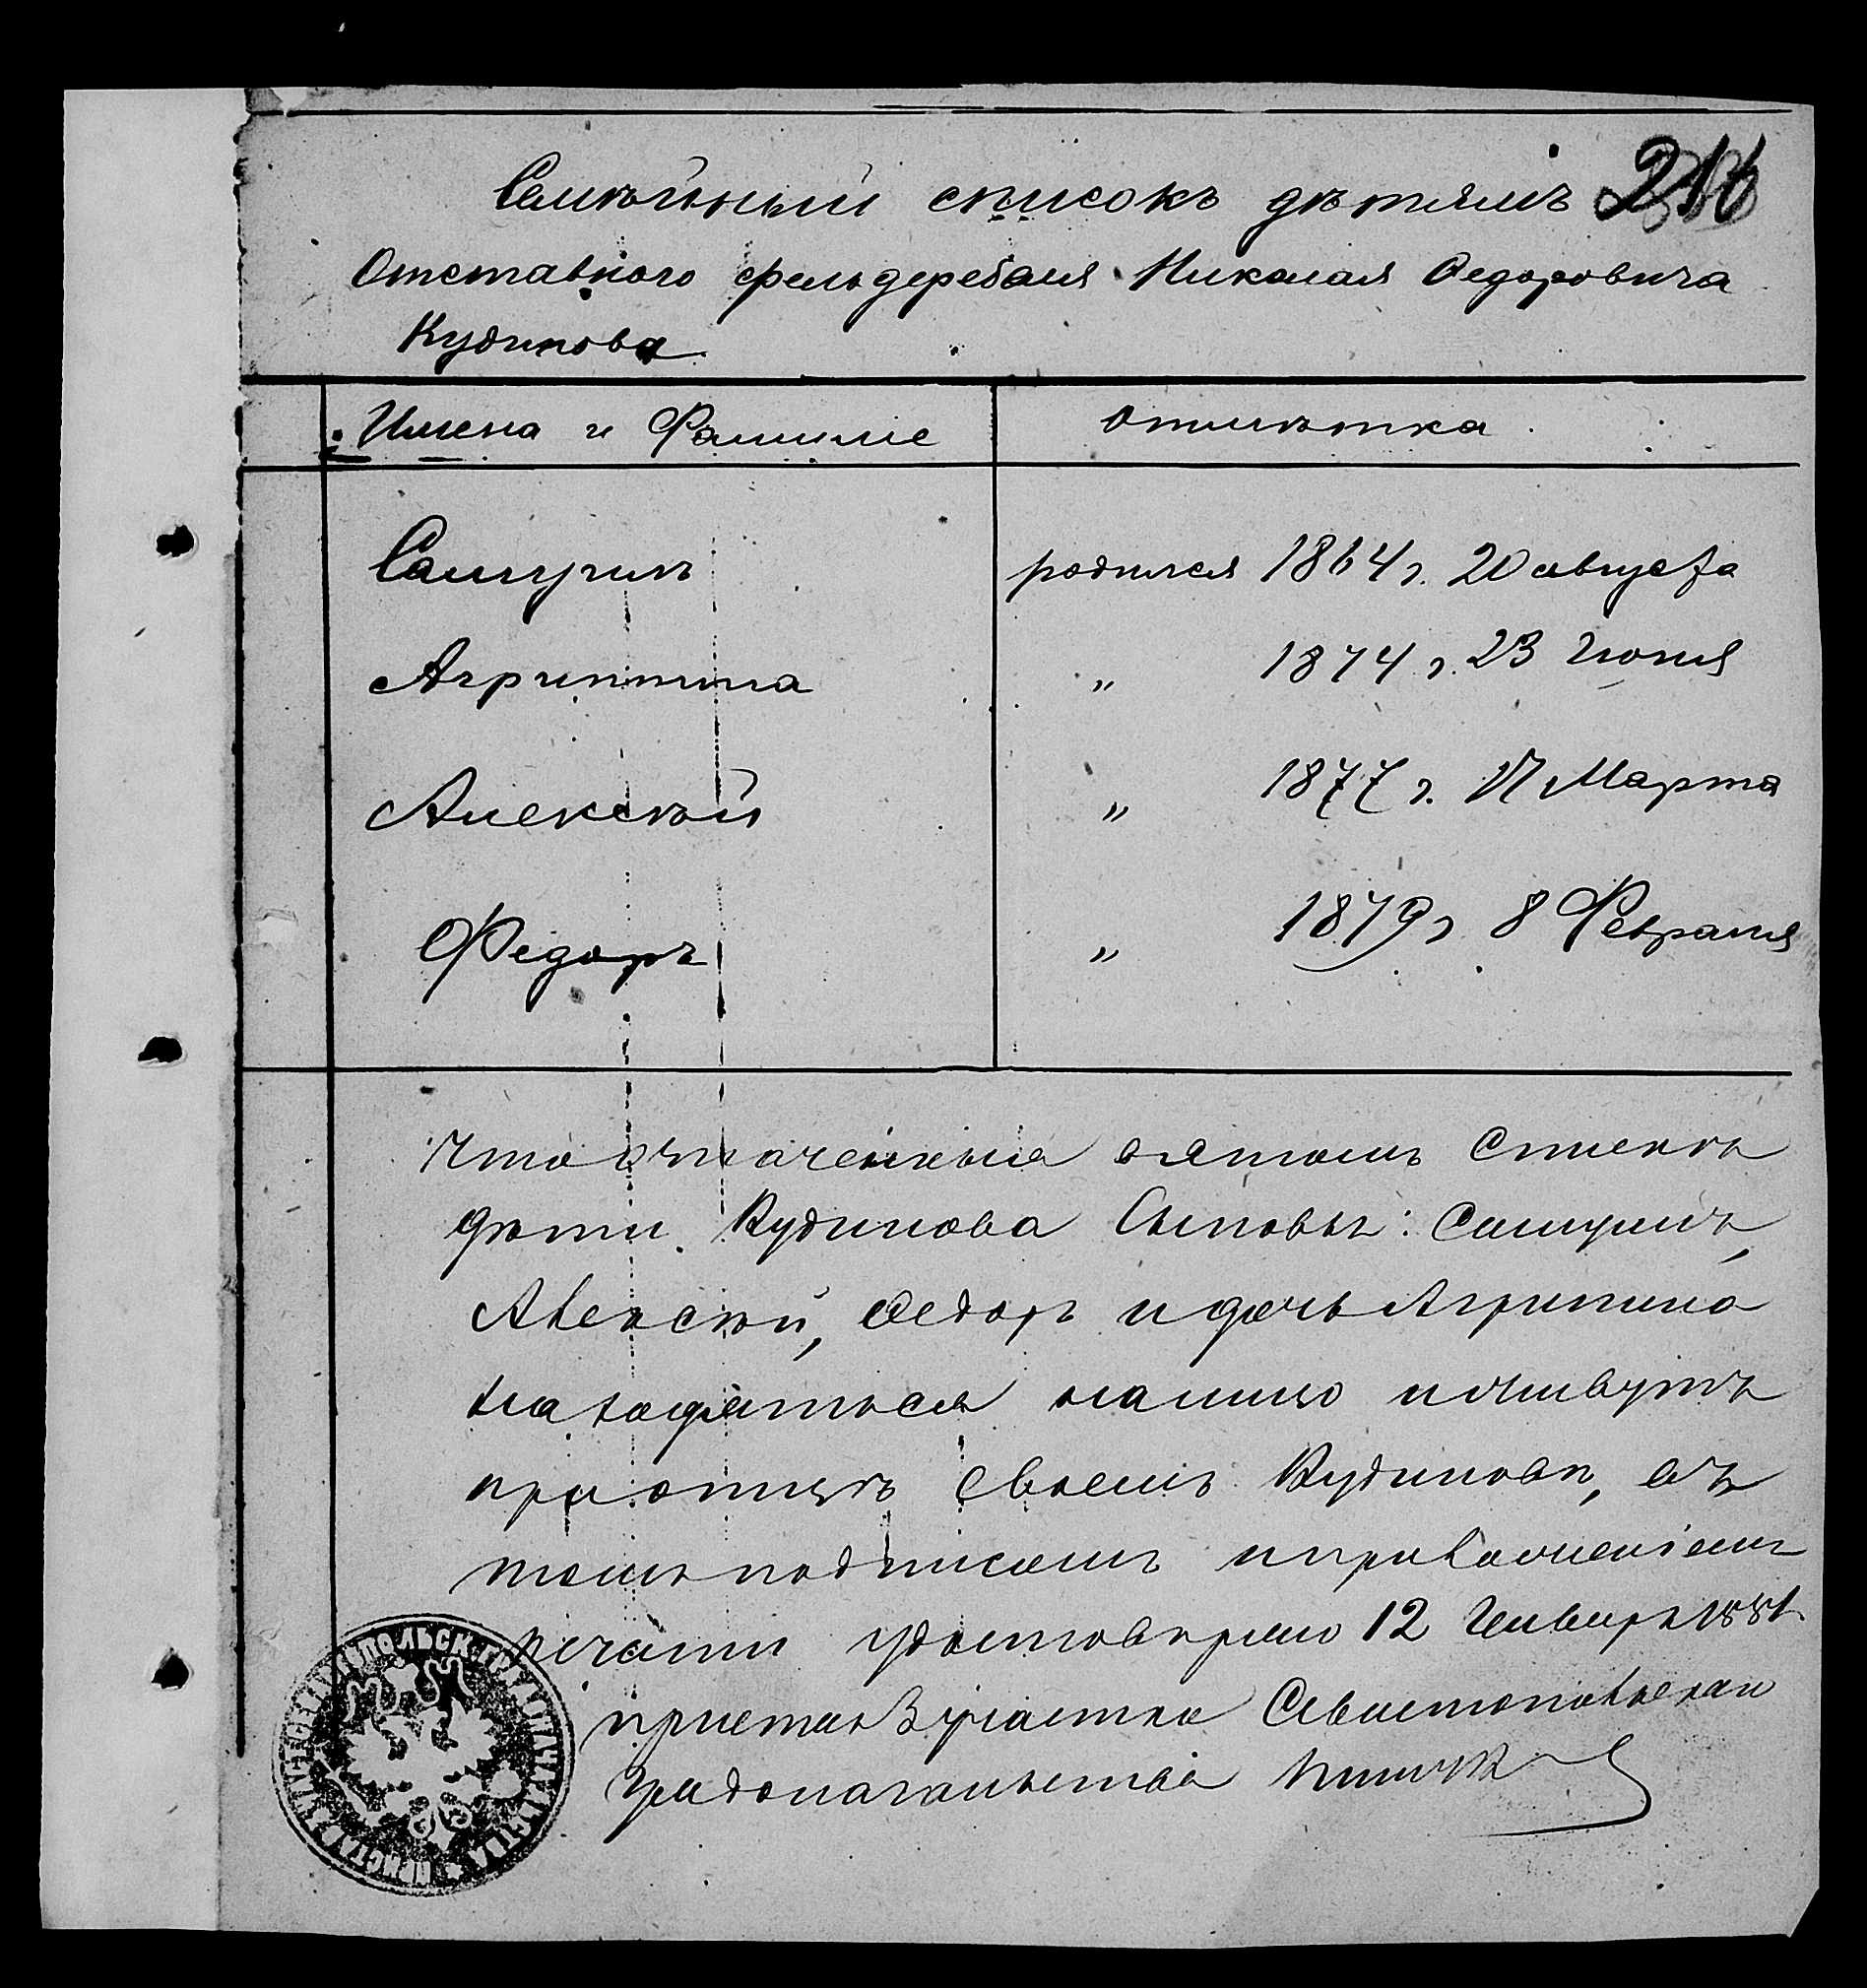 216
Семѣйный списокъ дѣтямъ
Отставного фельдфебеля Николая Ѳедоровича
Кудинова
Имена и Фамиліе
отмѣтка
Самуилъ
родился 1864 г. 20 августа
Агрипинна
„ 1874 г. 23 Июня
Алексѣй
„ 1877 г. 17 Марта
Федоръ
„ 1879 г 8 Февраля
Что означенныя вэтомъ списке
дѣти Кудинова Сыновья: Самуилъ,
Алексѣй, Ѳедоръ и дочь Агрипина
находятся налицо иживутъ
приотцѣ своемъ Кудиновѣ, въ
томъ подписомъ иприложеніемъ
печати удостовѣряю 12 Января 1881
приставъ 3 участка Севастопольскаго
градоначальства